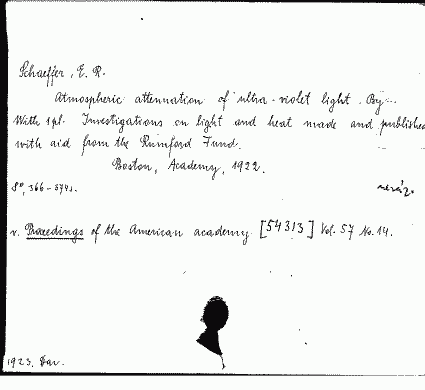 Schaeffer, E. R.
Atmospheric attenuation of ultra-violet light. By...
With 1 pl. Investigations on light and heat made and published
with aid from the Rumford Fund.
Boston, Academy, 1922.
8°, 366-374 s.
v. Proceedings of the American academy [54313] Vol. 57 No. 14.
1923.